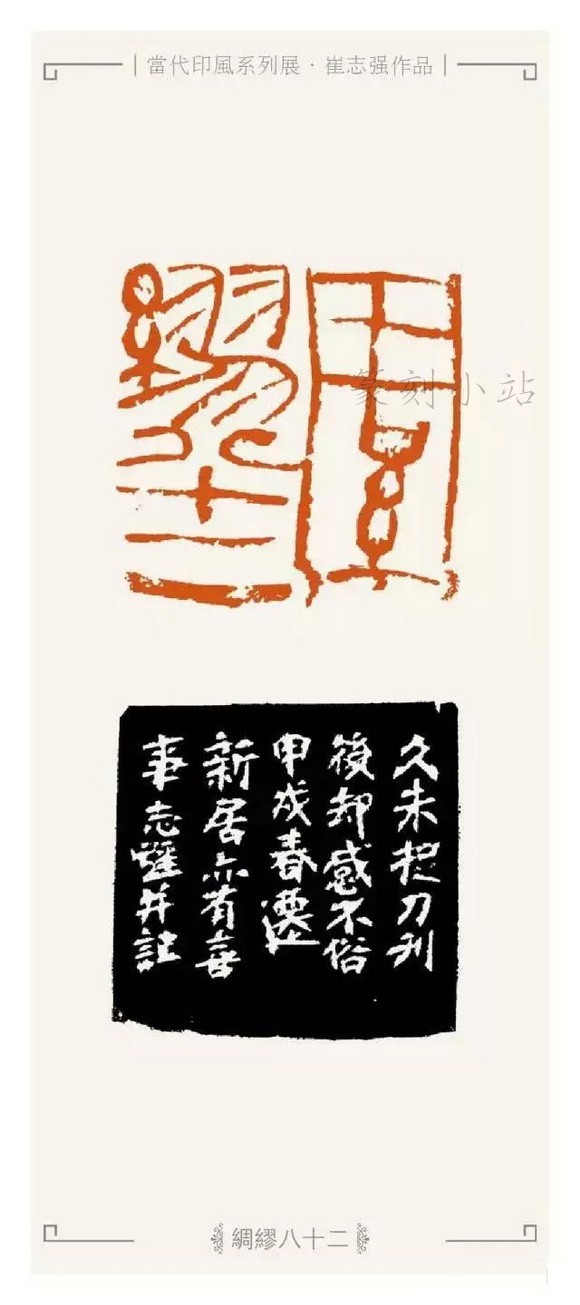 當代印風系列展·崔志强作品
篆刻小站
久未捉刀刊
後却感不俗
甲戌春遷
新居亦有喜
事志并註
綢繆八十二